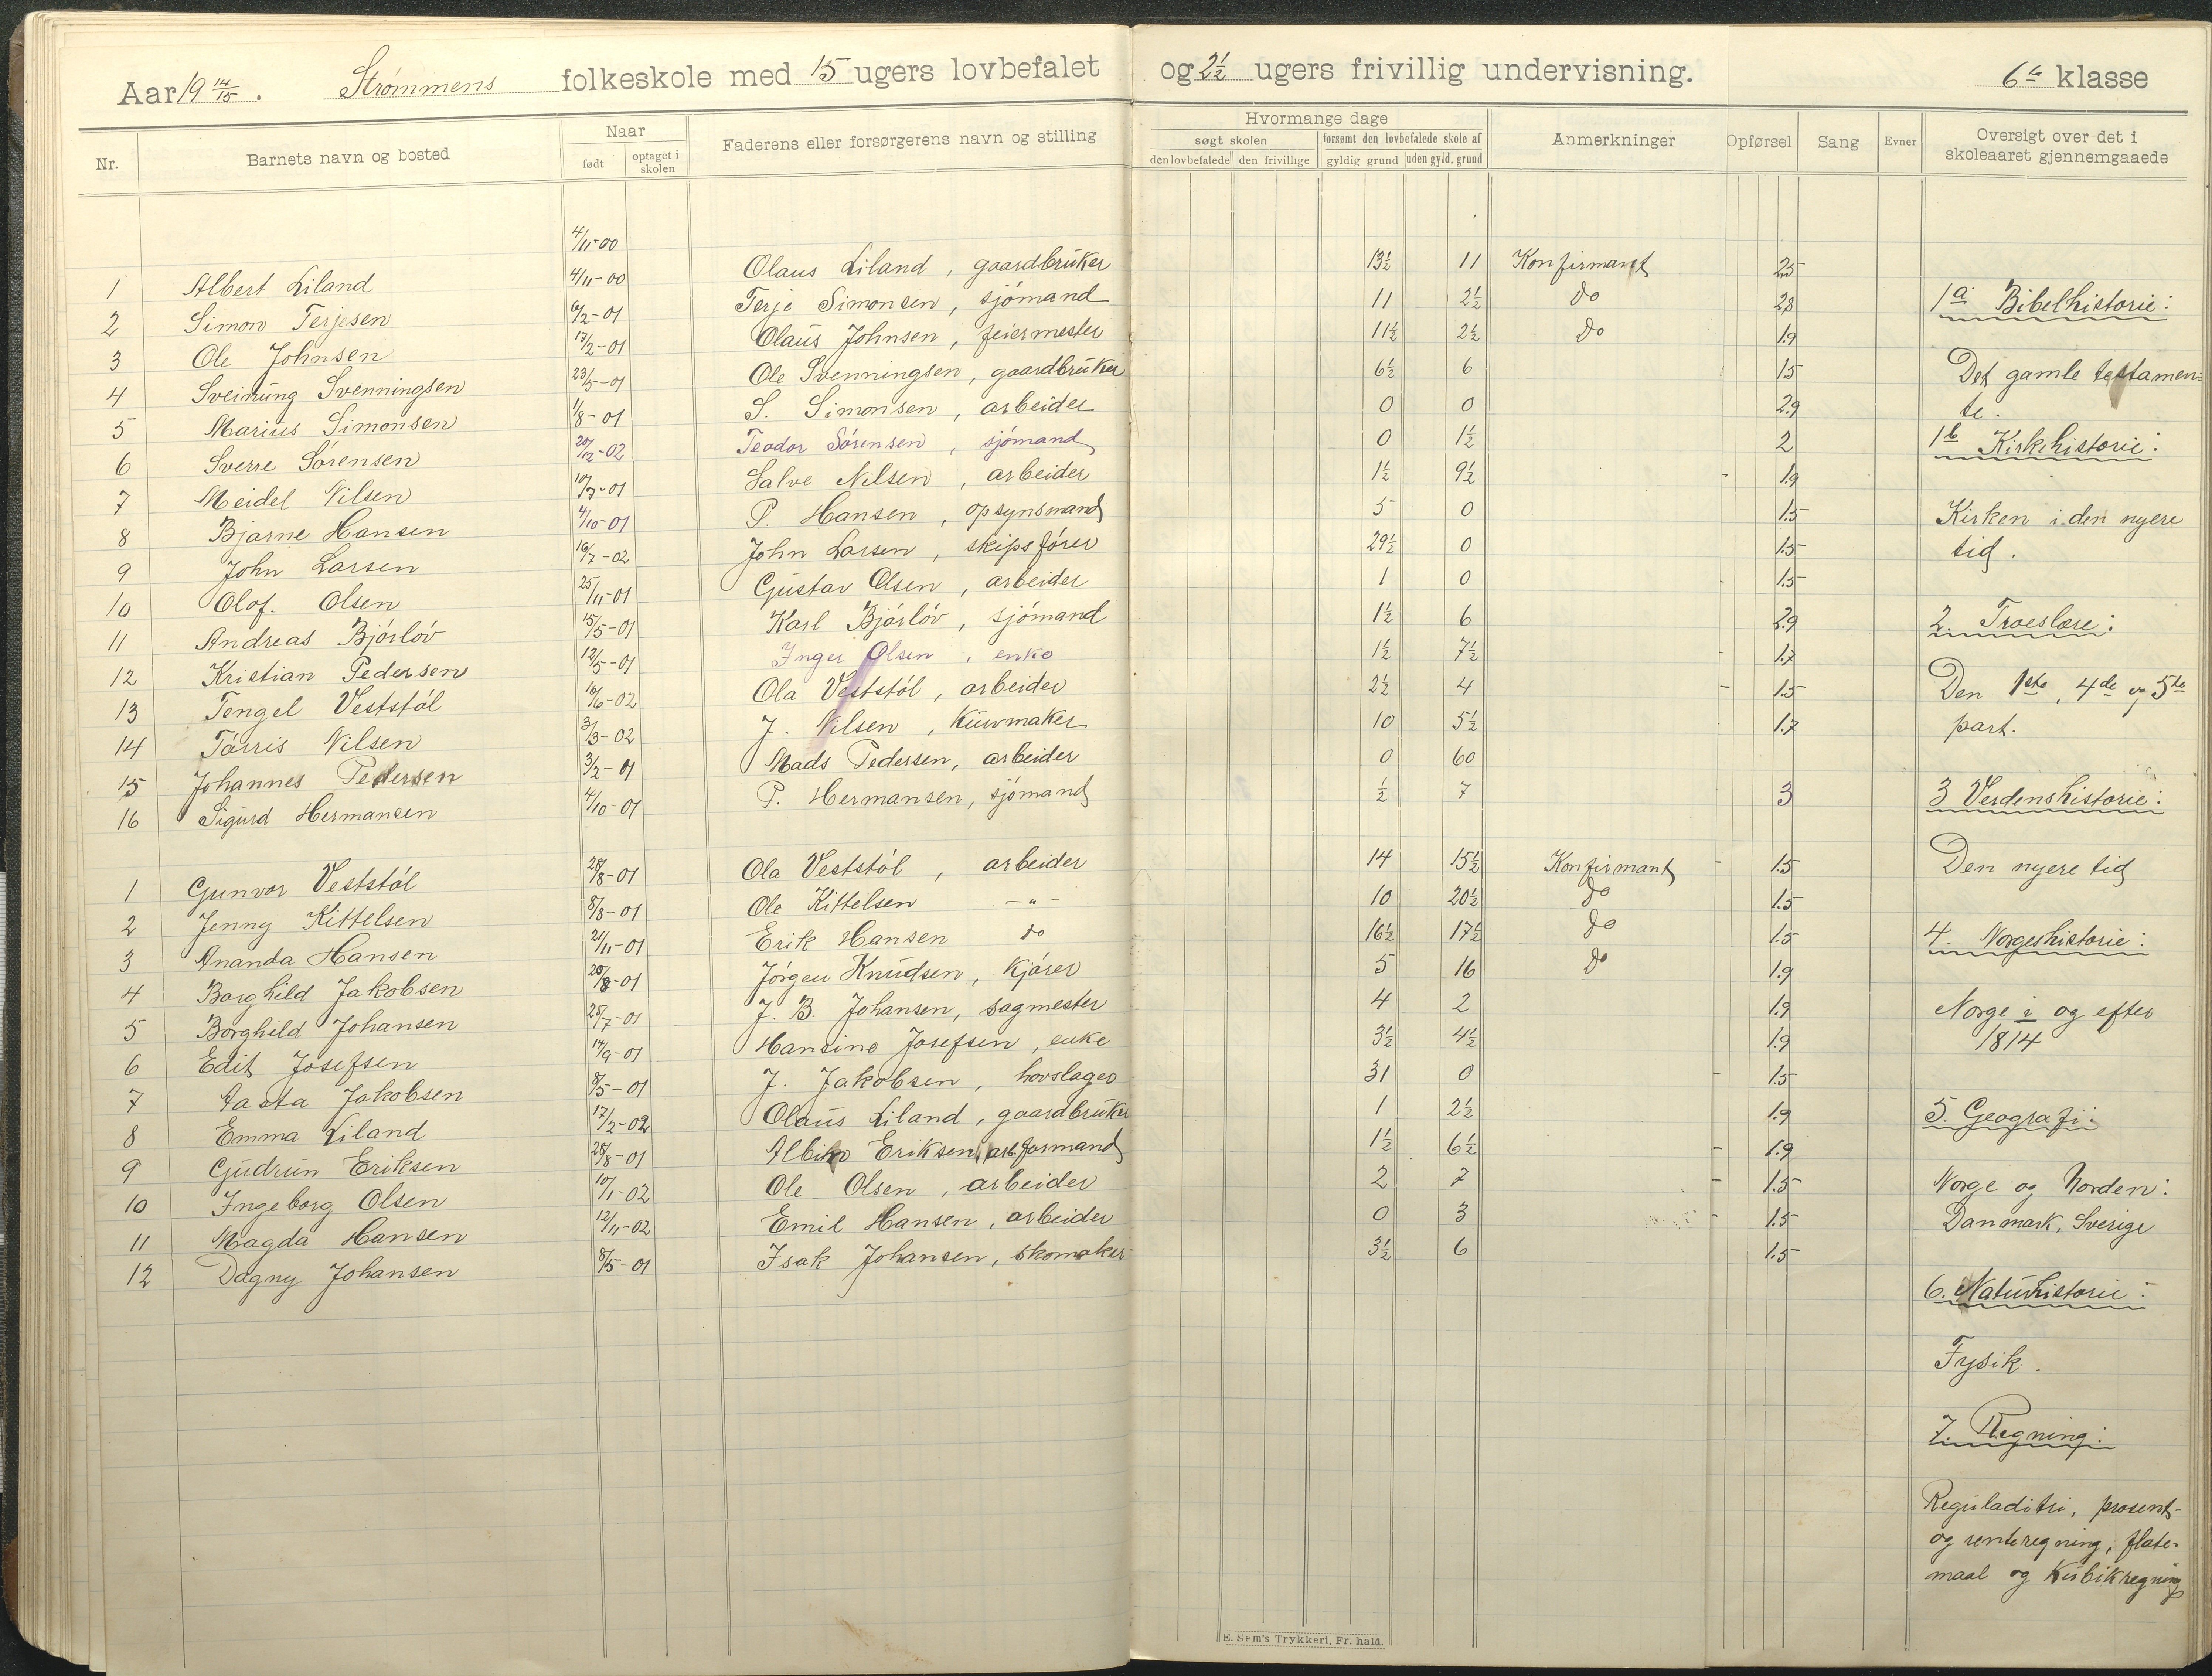 Aar 19 14/15. Strømmens folkeskole med 15 ugers lovbefalet og 2½ ugers frivillig undervisning. 6te klasse
Nr. Barnets navn og bosted Naar født optaget i skolen Faderens eller forsørgerens navn og stilling Hvormange dage søgt skolen den lovbefalede den frivillige forsømt den lovbefalede skole af gyldig grund uden gyld. grund Anmerkninger Opførsel Sang Evner Oversigt over det i skoleaaret gjennemgaaede
4/11-00
1 Albert Liland 4/11-00 Olaus Liland, gaardbruker 13½ 11 Konfirmant 2.5
2 Simon Terjesen 6/2-01 Terje Simonsen, sjömand 11 2½ do 2.3
3 Ole Johnsen 17/2-01 Olaus Johnsen, feiermester 11½ 2½ do 1.9
4 Sveinung Svenningsen 23/5-01 Ole Svenningsen, gaardbruker 6½ 6 1.5
5 Marius Simonsen 1/8-01 S. Simonsen, arbeider 0 0 2.9
6 Sverre Sörensen 20/12-02 Teodor Sörensen, sjömand 0 1½ 2
7 Meidel Nilsen 10/7-01 Salve Nilsen, arbeider 1½ 9½ 1.9
8 Bjarne Hansen 4/10-01 P. Hansen, opsynsmand 5 0 1.5
9 John Larsen 16/7-02 John Larsen, skipsförer 29½ 0 1.5
10 Olof. Olsen 25/11-01 Gustav Olsen, arbeider 1 0 1.5
11 Andreas Bjórlóv 15/5-01 Karl Bjórlóv, sjómand 1½ 6 2.9
12 Kristian Pedersen 12/5-01 Inger Olsen, enke 1½ 7½ 1.7
13 Tengel Veststól 16/6-02 Ola Veststól, arbeider 2½ 4 1.5
14 Tárris Nilsen 3/3-02 J. Nilsen, Kurvmaker 10 5½ 1.7
15 Johannes Pedersen 3/2-01 Mads Pedersen, arbeider 0 60
16 Sigurd Hermansen 4/10-01 P. Hermansen, sjömand ½ 7 3
1 Gunvor Veststól 28/8-01 Ola Veststól, arbeider 14 15½ Konfirmant 1.5
2 Jenny Kittelsen 8/8-01 Ole Kittelsen -"- 10 20½ do 1.5
3 Ananda Hansen 21/11-01 Erik Hansen do 16½ 17½ do 1.5
4 Borghild Jakobsen 20/8-01 Jórgen Knudsen, Kjórer 5 16 do 1.9
5 Borghild Johansen 25/7-01 J. B. Johansen, sagmester 4 2 1.9
6 Edit Josefsen 14/9-01 Hansine Josefsen, enke 3½ 4½ 1.9
7 Aasta Jakobsen 8/5-01 J. Jakobsen, hovslager 31 0 1.5
8 Emma Liland 17/2-02 Olaus Liland, gaardbruker 1 2½ 1.9
9 Gudrun Eriksen 28/8-01 Eriksen, arb.formand 1½ 6½ 1.9
10 Ingeborg Olsen 10/1-02 Ole Olsen, arbeider 2 7 1.5
11 Magda Hansen 12/11-02 Emil Hansen, arbeider 0 3 1.5
12 Dagny Johansen 8/5-01 Isak Johansen, skomaker 3½ 6 1.5
1a Bibelhistorie:
Det gamle testamen=
te.
1b Kirkehistorie:
Kirken i den nyere
tid.
2. Troeslære:
Den 1ste, 4de og 5te
part.
3 Verdenshistorie:
Den nyere tid
4. Norgeshistorie:
Norge i og efter
1814
5. Geografi:
Norge og Norden:
Danmark, Sverige
6. Naturhistorie:
Fysik.
7. Regning:
Reguladitri, prosent-
og renteregning, flate-
maal og Kubikregning
E. Sem's Trykkeri, Fr. hald.